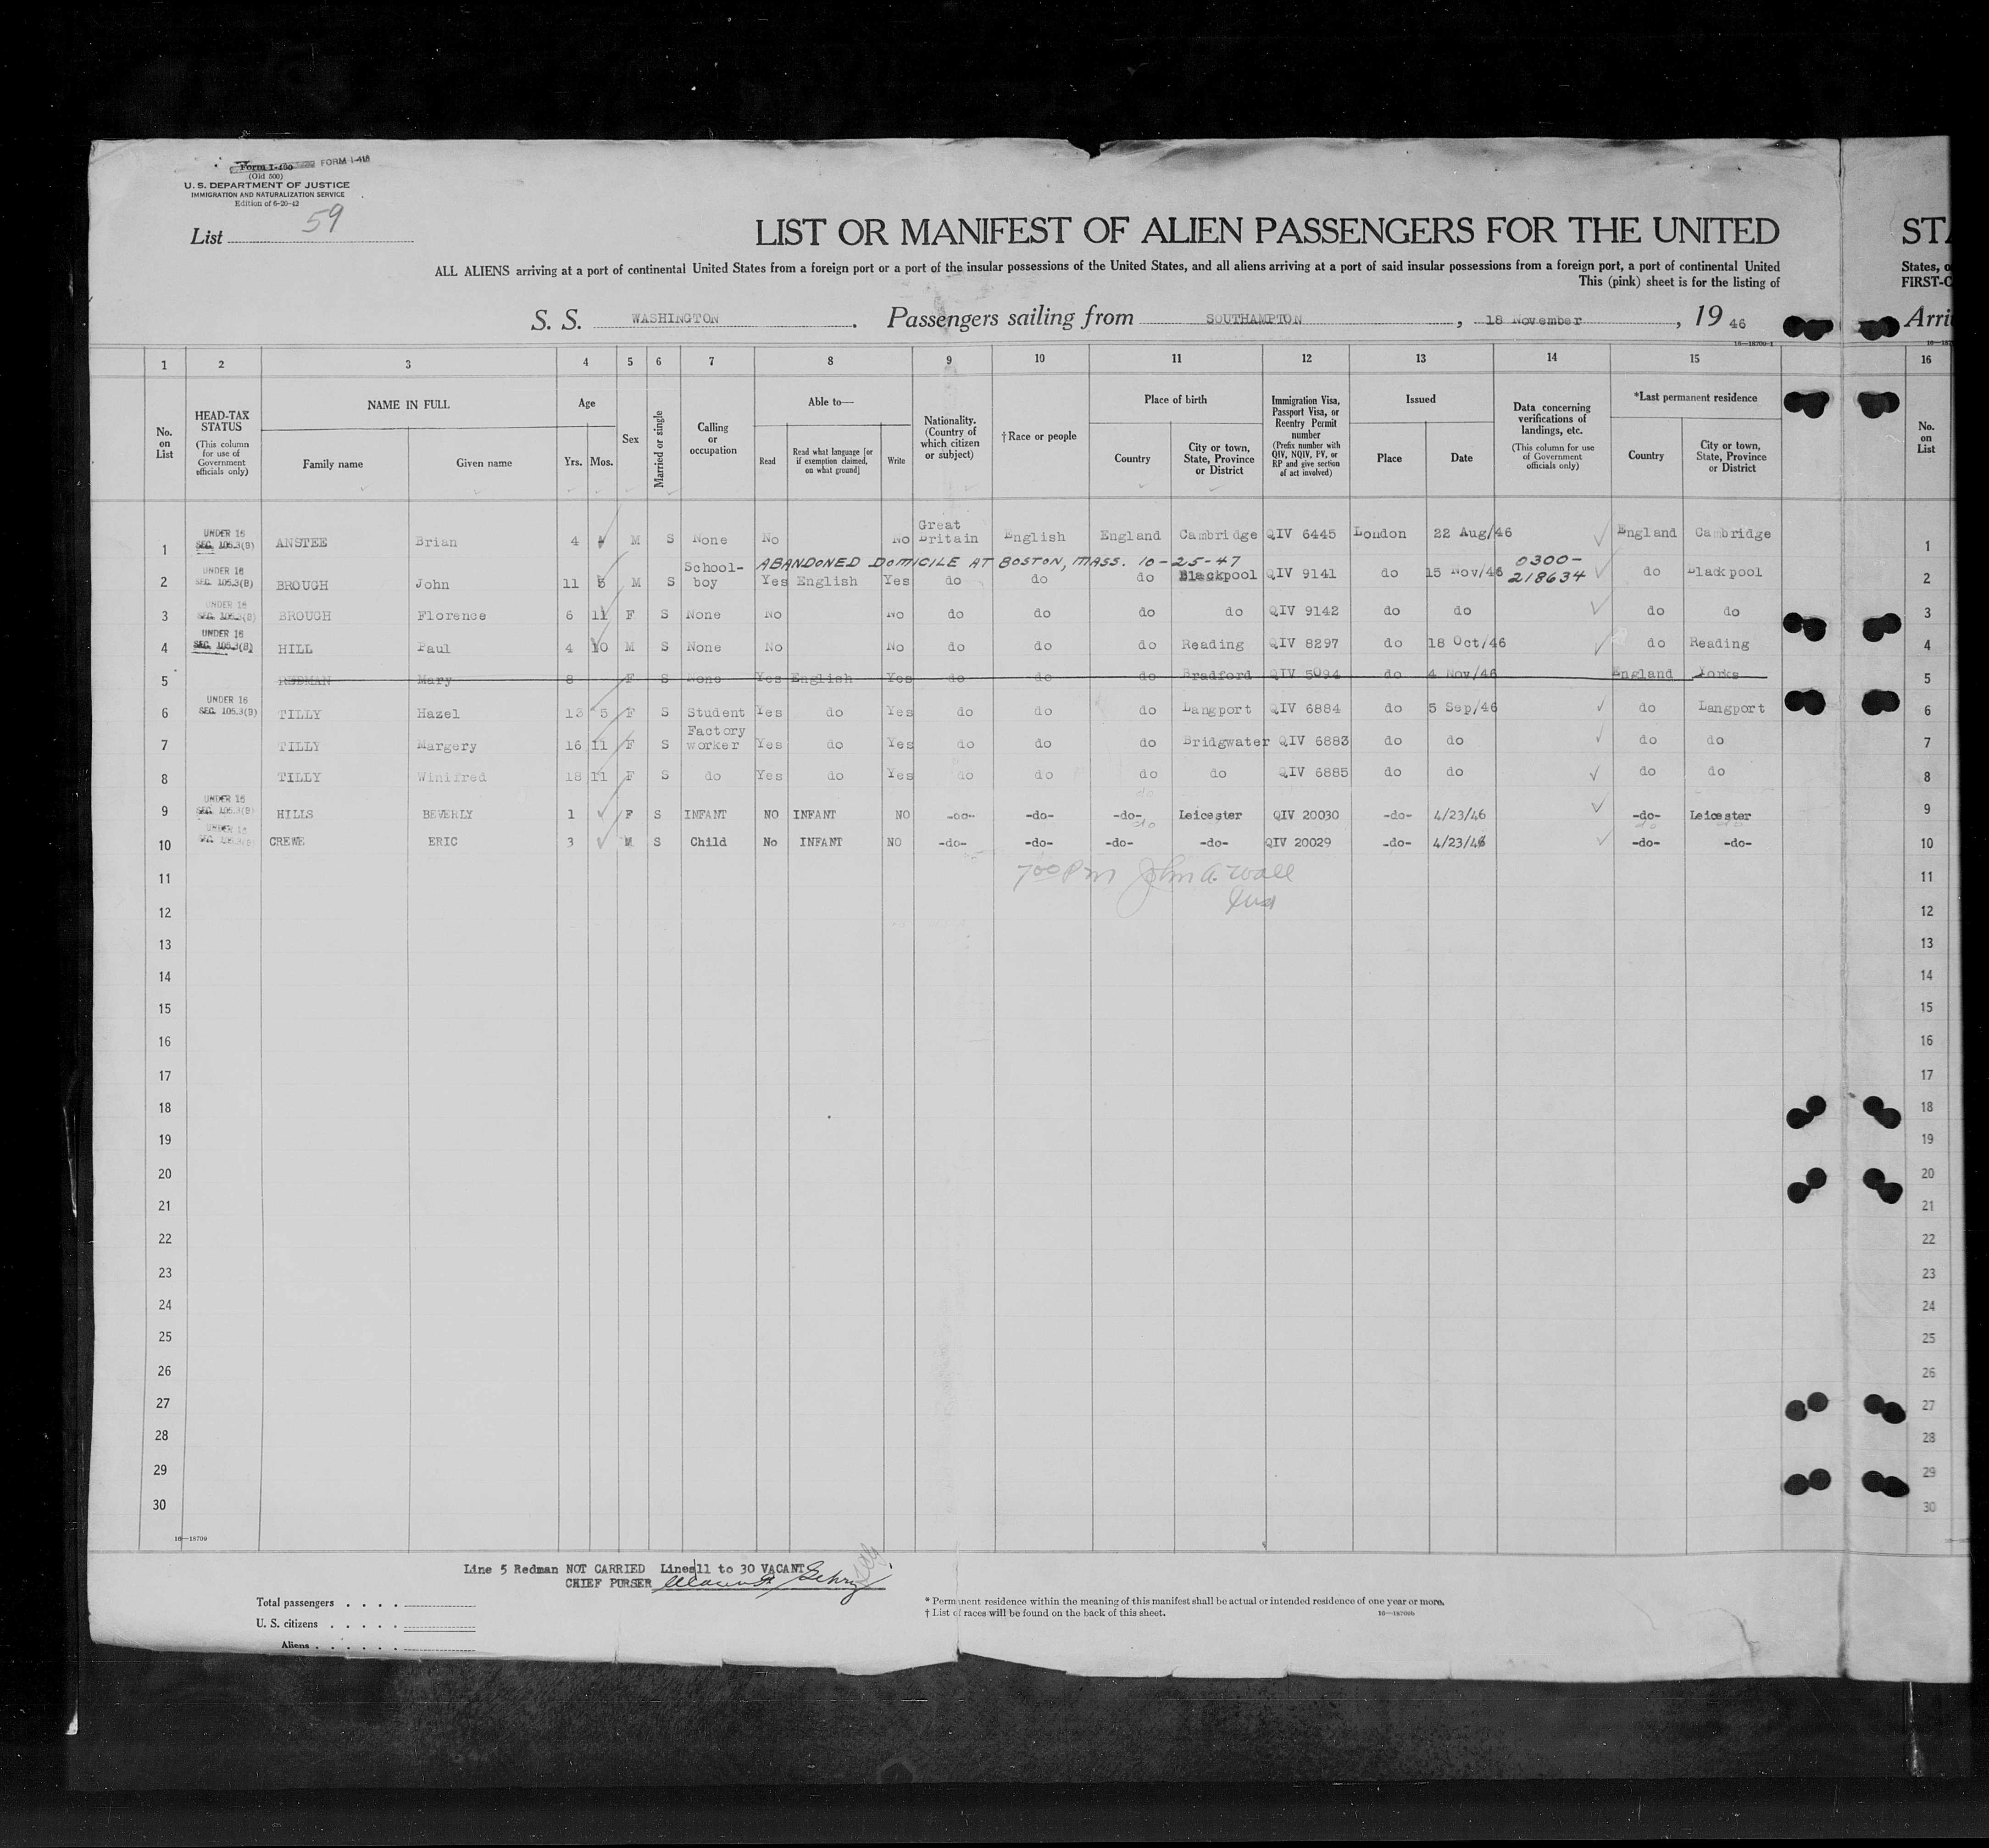 Form I-480 FORM I-418
(Old 500)
U. S. DEPARTMENT OF JUSTICE
IMMIGRATION AND NATURALIZATION SERVICE
Edition of 6-20-42
List 59
LIST OR MANIFEST OF ALIEN PASSENGERS FOR THE UNITED
ALL ALIENS arriving at a port of continental United States from a foreign port or a port of the insular possessions of the United States, and all aliens arriving at a port of said insular possessions from a foreign port, a port of continental United
This (pink) sheet is for the listing of
S. S. WASHINGTON. Passengers sailing from SOUTHAMPTON, 18 November, 19 46
16—18709-1
STA
States, o
FIRST-C
Arri
1 2 3 4 5 6 7 8 9 10 11 12 13 14 15 16
No. on List
HEAD-TAX STATUS (This column for use of Government officials only)
NAME IN FULL
Family name Given name
Age
Yrs. Mos.
Sex
Married or single
Calling or occupation
Able to—
Read Read what language [or if exemption claimed, on what ground] Write
Nationality. (Country of which citizen or subject)
† Race or people
Place of birth
Country City or town, State, Province or District
Immigration Visa, Passport Visa, or Reentry Permit number (Prefix number with QIV, NQIV, PV, or RP and give section of act involved)
Issued
Place Date
Data concerning verifications of landings, etc. (This column for use of Government officials only)
*Last permanent residence
Country City or town, State, Province or District
No. on List
1 UNDER 16 SEC. 105.3(B) ANSTEE Brian 4 M S None No No Great Britain English England Cambridge QIV 6445 London 22 Aug/46 England Cambridge 1
ABANDONED DOMICILE AT BOSTON, MASS. 10-25-47
2 UNDER 16 SEC. 105.3(B) BROUGH John 11 5 M S School-boy Yes English Yes do do do Blackpool QIV 9141 do 15 Nov/46 0300-218634 do Blackpool 2
3 UNDER 16 SEC. 105.3(B) BROUGH Florence 6 11 F S None No No do do do do QIV 9142 do do do do 3
4 UNDER 16 SEC. 105.3(B) HILL Paul 4 10 M S None No No do do do Reading QIV 8297 do 18 Oct/46 do Reading 4
5 REDMAN Mary 8 F S None Yes English Yes do do do Bradford QIV 5094 do 4 Nov/46 England Yorks 5
6 UNDER 16 SEC. 105.3(B) TILLY Hazel 13 5 F S Student Yes do Yes do do do Langport QIV 6884 do 5 Sep/46 do Langport 6
7 TILLY Margery 16 11 F S Factory worker Yes do Yes do do do Bridgwater QIV 6883 do do do do 7
8 TILLY Winifred 18 11 F S do Yes do Yes do do do do QIV 6885 do do do do 8
9 UNDER 16 SEC. 105.3(B) HILLS BEVERLY 1 F S INFANT NO INFANT NO -do- -do- -do- Leicester QIV 20030 -do- 4/23/46 -do- Leicester 9
10 UNDER 16 SEC. 105.3(B) CREWE ERIC 3 M S Child No INFANT NO -do- -do- -do- -do- QIV 20029 -do- 4/23/46 -do- -do- 10
700 PM John A. Wall
11 11
12 12
13 13
14 14
15 15
16 16
17 17
18 18
19 19
20 20
21 21
22 22
23 23
24 24
25 25
26 26
27 27
28 28
29 29
30 30
16—18709
Line 5 Redman NOT CARRIED Lines 11 to 30 VACANT
CHIEF PURSER
Total passengers . . . .
U. S. citizens . . . . .
Aliens . . . . . .
* Permanent residence within the meaning of this manifest shall be actual or intended residence of one year or more.
† List of races will be found on the back of this sheet.
16—18709b